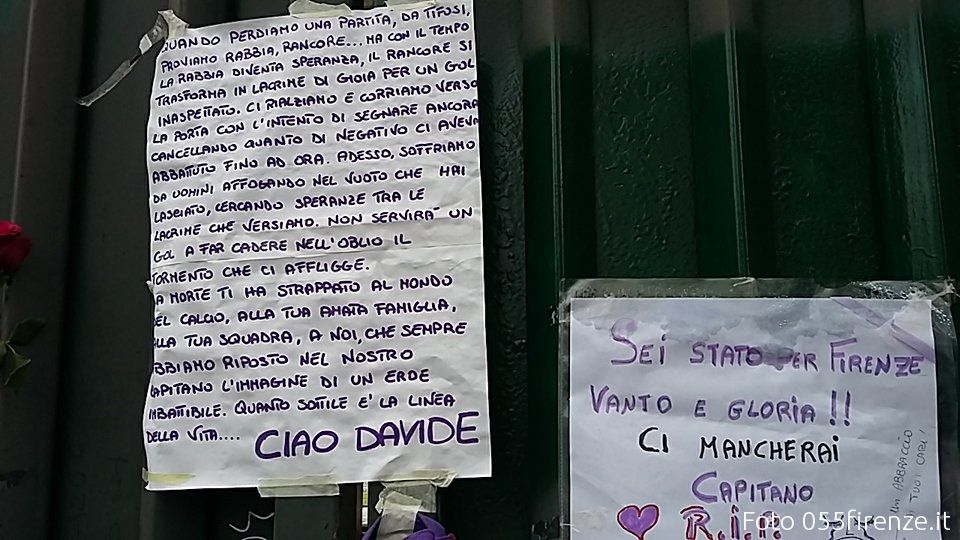 QUANDO PERDIAMO UNA PARTITA, DA TIFOSI,
PROVIAMO RABBIA, RANCORE... MA CON IL TEMPO
LA RABBIA DIVENTA SPERANZA, IL RANCORE SI
TRASFORMA IN LACRIME DI GIOIA PER UN GOL
INASPETTATO. CI RIALZIAMO E CORRIAMO VERSO
LA PORTA CON L'INTENTO DI SEGNARE ANCORA
CANCELLANDO QUANTO DI NEGATIVO CI AVEVA
ABBATTUTO FINO AD ORA. ADESSO, SOFFRIAMO
DA UOMINI AFFOGANDO NEL VUOTO CHE HAI
LASCIATO, CERCANDO SPERANZE TRA LE
LACRIME CHE VERSIAMO. NON SERVIRA' UN
GOL A FAR CADERE NELL'OBLIO IL
TORMENTO CHE CI AFFLIGGE.
A MORTE TI HA STRAPPATO AL MONDO
EL CALCIO, ALLA TUA AMATA FAMIGLIA,
LLA TUA SQUADRA, A NOI, CHE SEMPRE
BBIAMO RIPOSTO NEL NOSTRO
CAPITANO L'IMMAGINE DI UN EROE
IMBATTIBILE. QUANTO SOTTILE E' LA LINEA
DELLA VITA.... CIAO DAVIDE
SEI STATO PER FIRENZE
VANTO E GLORIA!!
CI MANCHERAI
CAPITANO
R.I.P.
UN ABBRACCIO
AI TUOI CARI!
Foto 055firenze.it